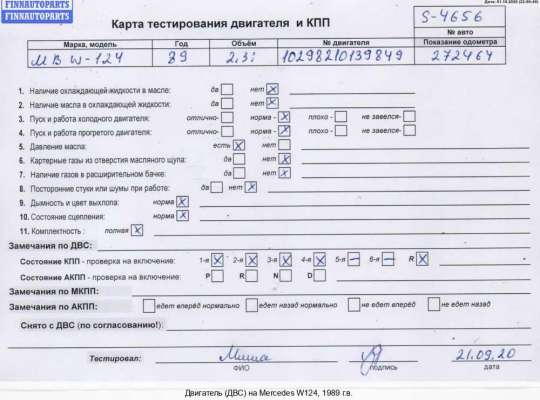 FINNAUTOPARTS
FINNAUTOPARTS
Карта тестирования двигателя и КПП
S-4656
№ авто
Марка, модель Год Объём № двигателя Показание одометра
MB W-124 89 2,3i 10298210139849 272464
1. Наличие охлаждающей жидкости в масле: да нет
2. Наличие масла в охлаждающей жидкости: да нет
3. Пуск и работа холодного двигателя: отлично- норма - плохо- не завелся-
4. Пуск и работа прогретого двигателя: отлично- норма - плохо - не завелся-
5. Давление масла: есть нет
6. Картерные газы из отверстия масляного щупа: да нет
7. Наличие газов в расширительном бачке: да нет
8. Посторонние стуки или шумы при работе: да нет
9. Дымность и цвет выхлопа: норма
10. Состояние сцепления: норма
11. Комплектность : полная
Замечания по ДВС:
Состояние КПП - проверка на включение: 1-я 2-я 3-я 4-я 5-я 6-я R
Состояние АКПП - проверка на включение: P R N D
Замечания по МКПП:
Замечания по АКПП: едет вперёд нормально едет назад нормально не едет вперёд не едет назад
Снято с ДВС (по согласованию!):
Тестировал: Миша 21.09.20
ФИО подпись дата
Двигатель (ДВС) на Mercedes W124, 1989 г.в.